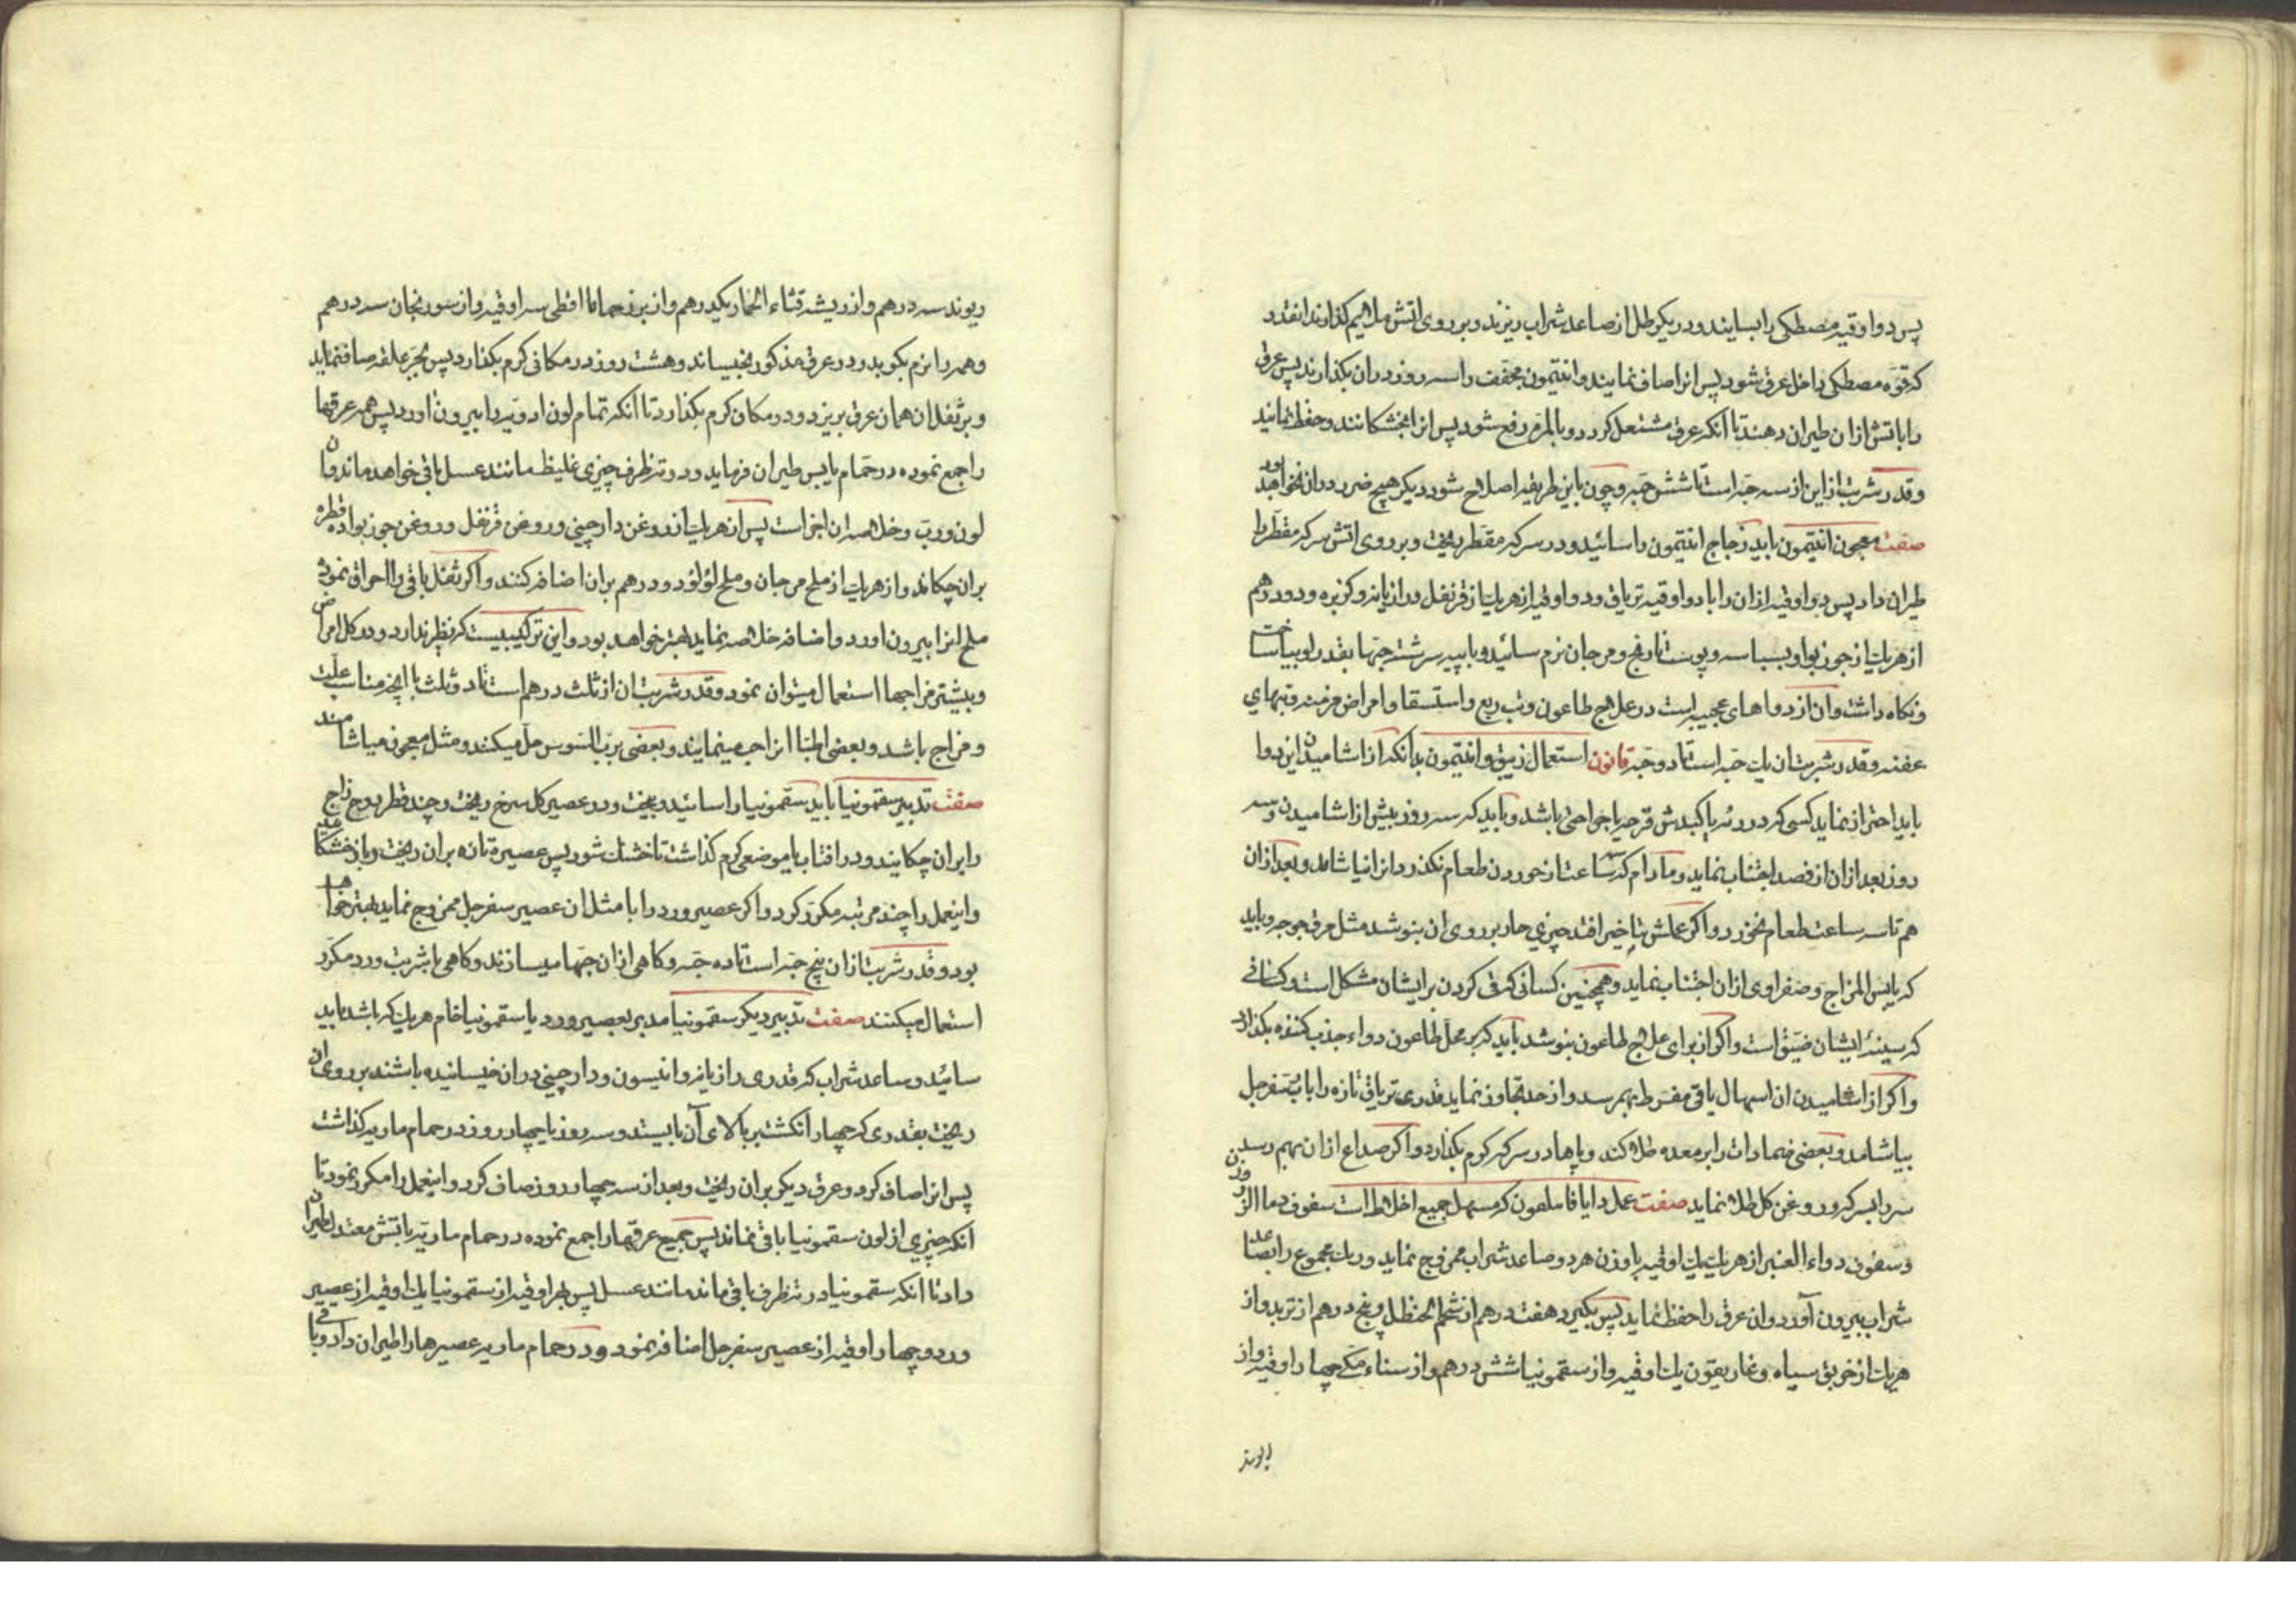 پس دو اوقیه مصطکی را بسایند و در یکرطل از صاعد شراب ریزند و بر روی اتش ملایم کذارند انقدر
که قوه مصطکی داخل عرق شود پس انرا صاف نمایند و انتیمون مجفف را سه روز در ان بکذارند پس عرق
را باتش ازان طیران دهند تا آنکه عرق مشتعل کردد و بالمره رفع شود پس انرا بخشکانند و حفظ نمانید
و قدر شربت ازاین از سه حبه است تا شش حبه و چون باین طریقه اصلاح شود دیکر هیچ ضرر در ان نخواهد بود
صفت معجون انتیمون باید زجاج انتیمون را سائید و در سرکه مقطر ریخت و بر روی اتش سرکه مقطر را
طیران داد پس دو اوقیه ازان را با دو اوقیه تریاق و دو اوقیه از هریک از قرنفل و رازیانه و کزبره و دو درهم
از هریک از جوز بوا و بسباسه و پوست نارنج و مرجان نرم سائید و با پیه سرشته حبها بقدر لوبیا ساخت
و نکاه داشت وان از دواهای عجیبه است در علاج طاعون و تب ربع و استسقا و امراض مزمنه و تبهای
عفنه و قدر شربت ان یک حبه است تا دو حبه قانون استعمال زیبق و انتیمون بدآنکه از اشامیدن این دوا
باید احتراز نماید کسی که در ریه یا کبدش قرحه یا جراحتی باشد و باید که سه روز پیش از اشامیدن و سه
روز بعد ازان از فصد اجتناب نماید و مادام که سه ساعت از خوردن طعام نکذرد انرا نیاشامد و بعد ازان
هم تا سه ساعت طعام نخورد و اکر عملش بتاخیر افتد چیزی حار بر روی ان بنوشد مثل مرق جوجه و باید
که یابس المزاج و صفراوی ازان اجتناب نماید و همچنین کسانی که قی کردن بر ایشان مشکل است و کسانی
که سینهٔ ایشان ضیق است و اکر از برای علاج طاعون بنوشد باید که بر محل طاعون دواء جذب کننده بکذارد
و اکر از اشامیدن ان اسهال یا قی مفرط بهم رسد و از حد تجاوز نماید قدری تریاق تازه را با رب سفرجل
بیاشامد و بعضی ضمادات را بر معده طلا کند و پاها در سرکه کرم بکذارد و اکر صداع ازان بهم رسد
سر را بسرکه و روغن کل طلا نماید صفت عمل دایافاسلمون که مسهل جمیع اخلاط است سفوف دما الزر
و سفوف دواء العنبر از هریک یک اوقیه با وزن هر دو صاعد شراب ممزوج نماید و رب مجموع را بصاعد
شراب بیرون آورد و ان عرق را حفظ نماید پس بکیرد هفت درهم از شحم الحنظل و پنج درهم از تربد و از
هریک از خربق سیاه و غاریقون یک اوقیه و از سقمونیا شش درهم و از سناء مکی چهار اوقیه و از
ریوند سه درهم و از ریشه قثاء الحمار یکدرهم و از برزحماما اقطی سه اوقیه و از سورنجان سه درهم
و همه را نرم بکوبد و در عرق مذکور بخیساند و هشت روز در مکانی کرم بکذارد پس بجر علقه صاف نماید
و بر ثفل ان همان عرق بریزد و در مکان کرم بکذارد تا آنکه تمام لون ادویه را بیرون اورد پس همه عرقها
را جمع نموده در حمام یابس طیران فرماید و در ته ظرف چیزی غلیظ مانند عسل باقی خواهد ماند و ان
لون و رب و خلاصه ان اجزا است پس از هریک از روغن دارچینی و روغن قرنفل و روغن جوزبوا ده قطره
بر ان چکاند و از هریک از ملح مرجان و ملح لؤلؤ دو درهم بر ان اضافه کنند و اکر ثفل باقی را احراق نموده
ملح انرا بیرون اورد و اضافه خلاصه نماید بهتر خواهد بود و این ترکیبیست که نظیر ندارد و در کل امراض
و بیشتر مزاجها استعمال میتوان نمود و قدر شربت ان از ثلث درهم است تا دو ثلث با انچه مناسب علت
و مزاج باشد و بعضی اطبا انرا حب مینمایند و بعضی برب السوس حل میکنند و مثل معجون میاشامند
صفت تدبیر سقمونیا باید سقمونیا را سائید و بیخت و در عصیر کل سرخ ریخت و چند قطره روح زاج
را بر ان چکانید و در افتاب یا موضعی کرم کذاشت تا خشک شود پس عصیر تازه بر ان ریخت و باز خشکانید
و اینعمل را چند مرتبه مکرر کرد و اکر عصیر ورد را با مثل ان عصیر سفرجل ممزوج نماید بهتر خواهد
بود و قدر شربت ازان پنج حبه است تا ده حبه و کاهی ازان حبها میسازند و کاهی با شربت ورد مکرر
استعمال میکنند صفت تدبیر دیکر سقمونیا مدبر بعصیر ورد یا سقمونیا خام هریک که باشد باید
سائید و صاعد شراب که قدری رازیانه و انیسون و دارچینی در ان خیسانیده باشند بر روی ان
ریخت بقدری که چهار انکشت بر بالای آن بایستد و سه روز یا چهار روز در حمام ماریه کذاشت
پس انرا صاف کرد و عرق دیکر بر ان ریخت و بعد از سه چهار روز صاف کرد و اینعمل را مکرر نمود تا
انکه چیزی از لون سقمونیا باقی نماند پس جمیع عرقها را جمع نموده در حمام ماریه یا باتش معتدل طیران
داد تا انکه سقمونیا در ته ظرف باقی ماند مانند عسل پس بهر اوقیه از سقمونیا یک اوقیه از عصیر
ورد و چهار اوقیه از عصیر سفرجل اضافه نمود و در حمام ماریه عصیرها را طیران داد و باقی
ریوند